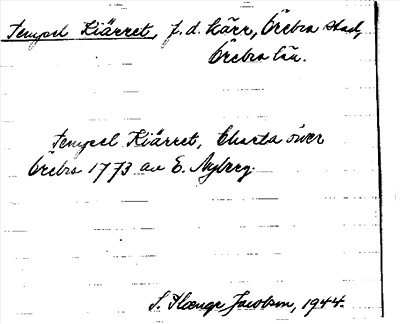 Tempel Kiärret, f.d. kärr, Örebro stad,
Örebro län.
Tempel Kiärret, Charta öwer
Örebro 1773 av E. Nyberg.
S. Jacobson, 1944.